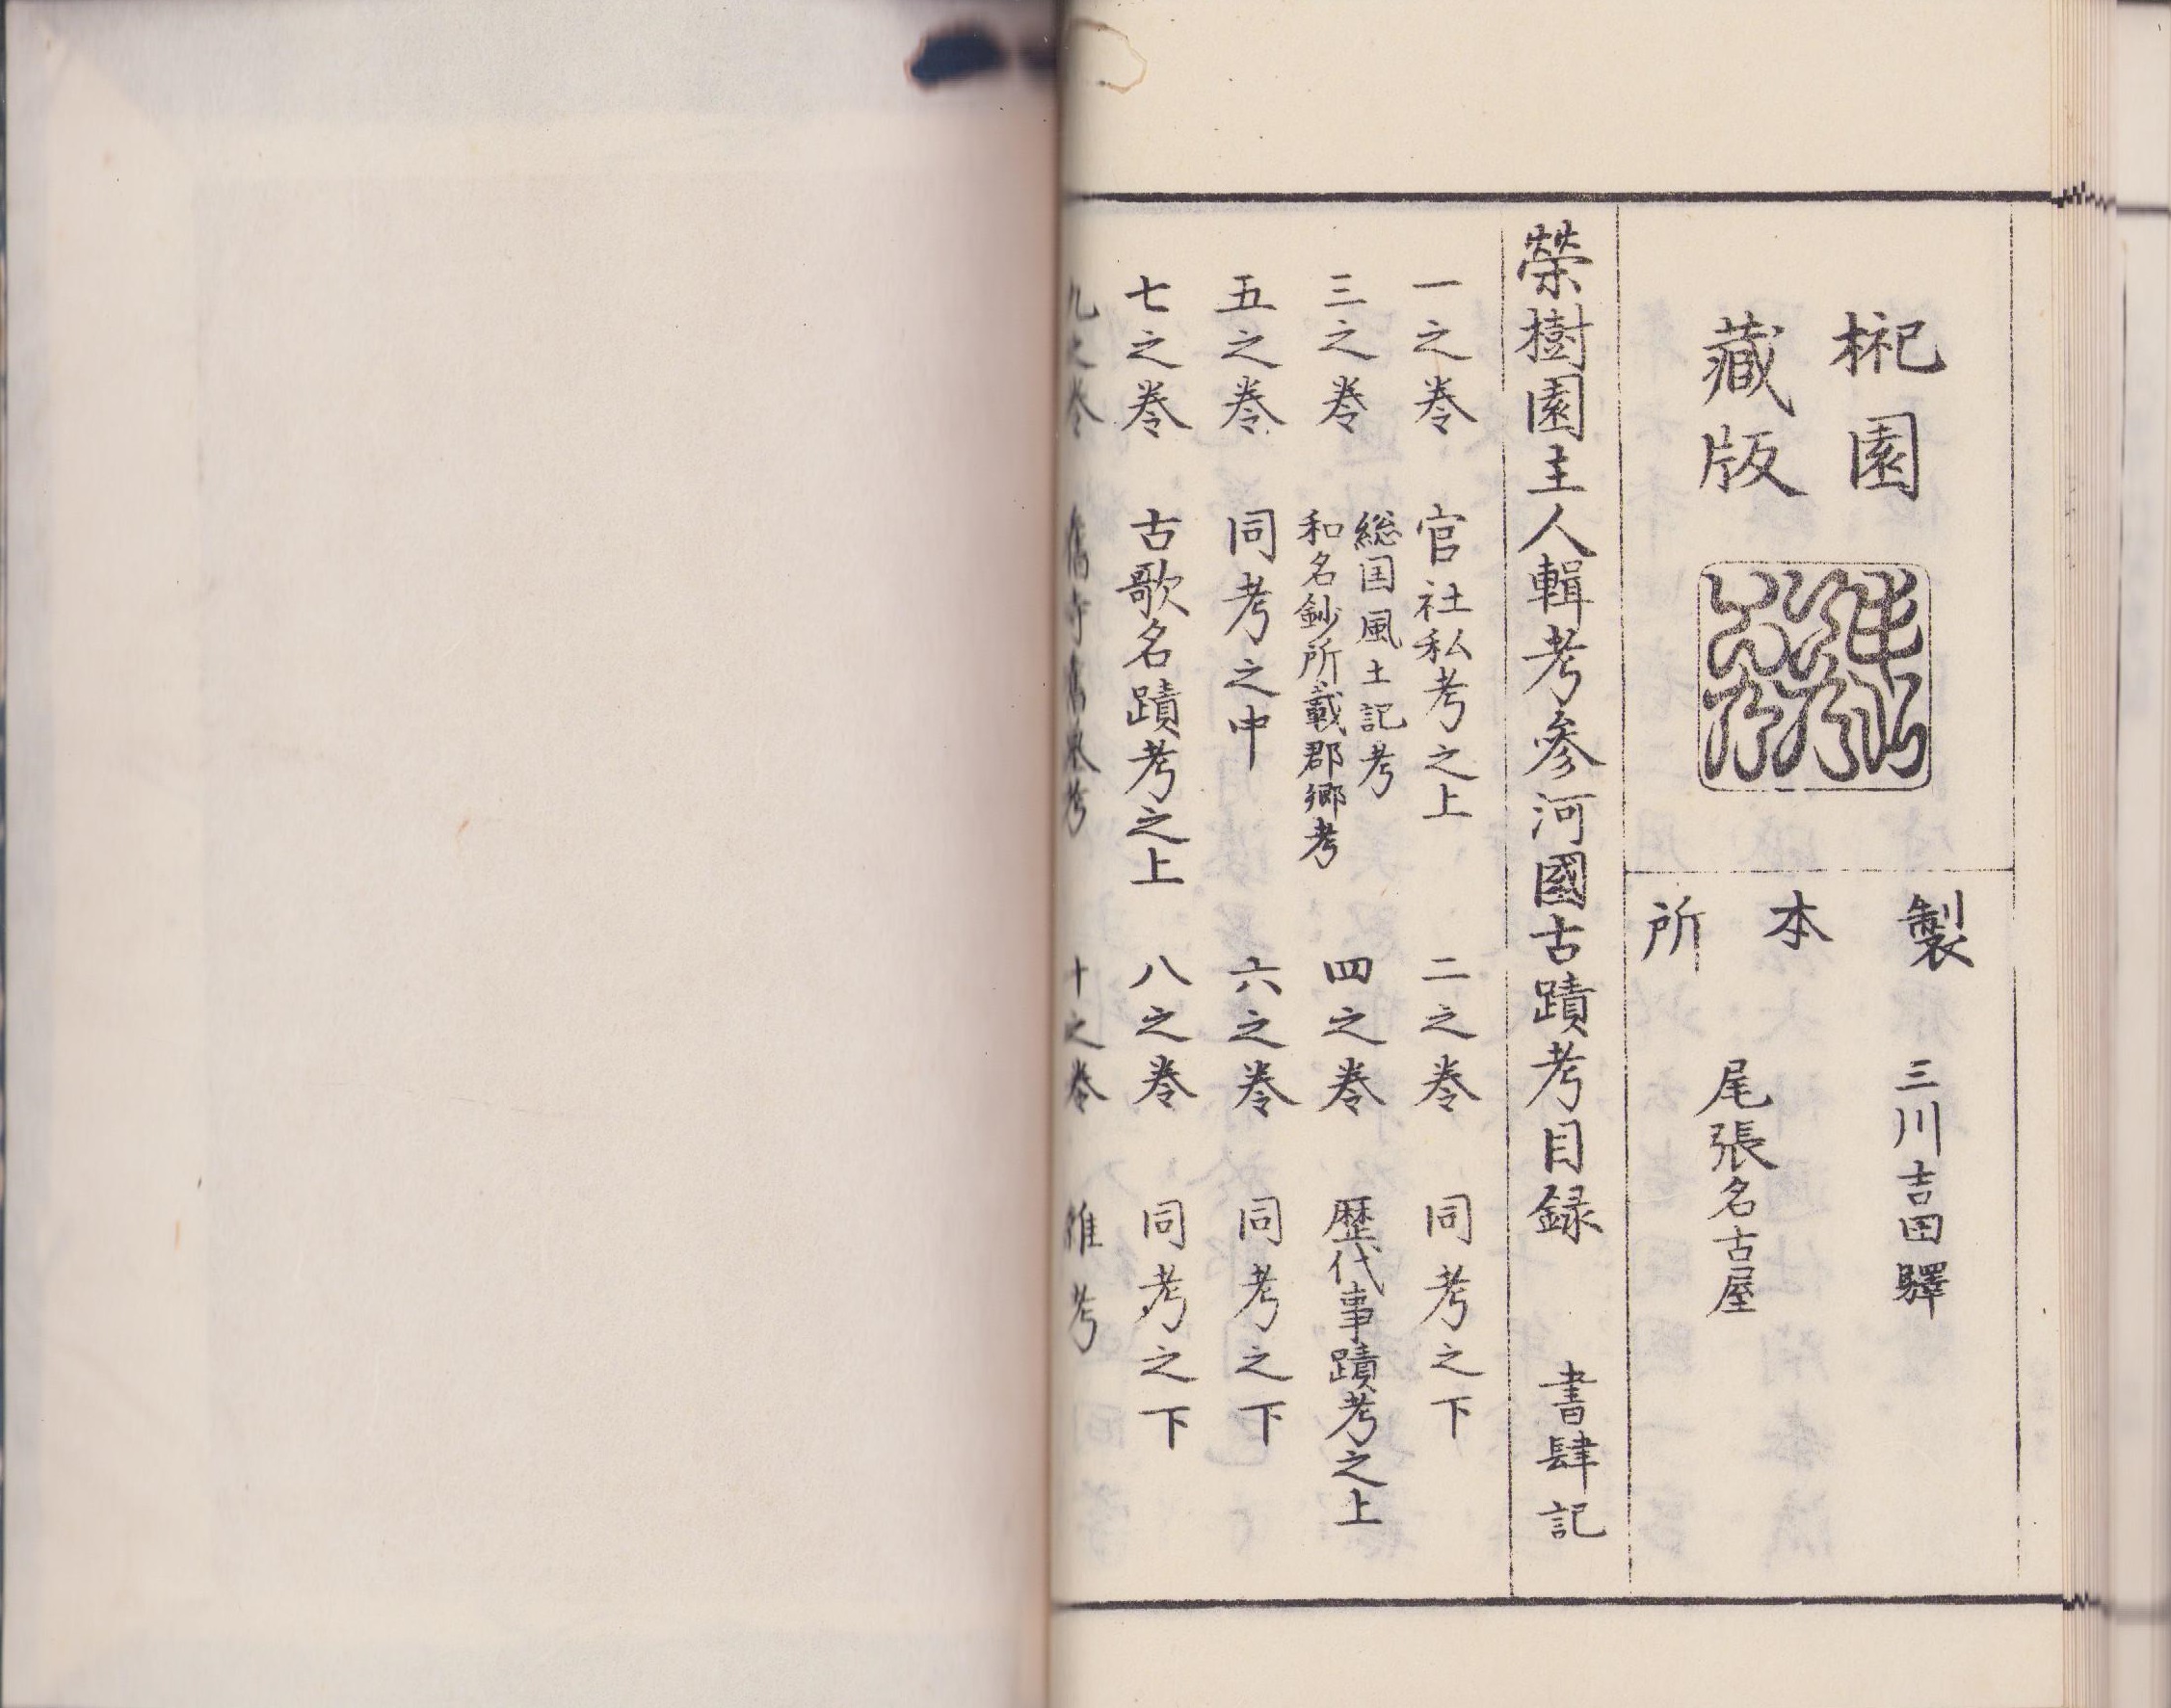 園
藏版
製本所
三川吉田驛
尾張名古屋
榮樹園主人輯考參河國古蹟考目録 書肆記
一之巻 官社私考之上 二之巻 同考之下
三之巻 総国風土記考 和名鈔所載郡郷考 四之巻 歴代事蹟考之上
五之巻 同考之中 六之巻 同考之下
七之巻 古歌名蹟考之上 八之巻 同考之下
九之巻 舊寺舊 考 十之巻 雑考